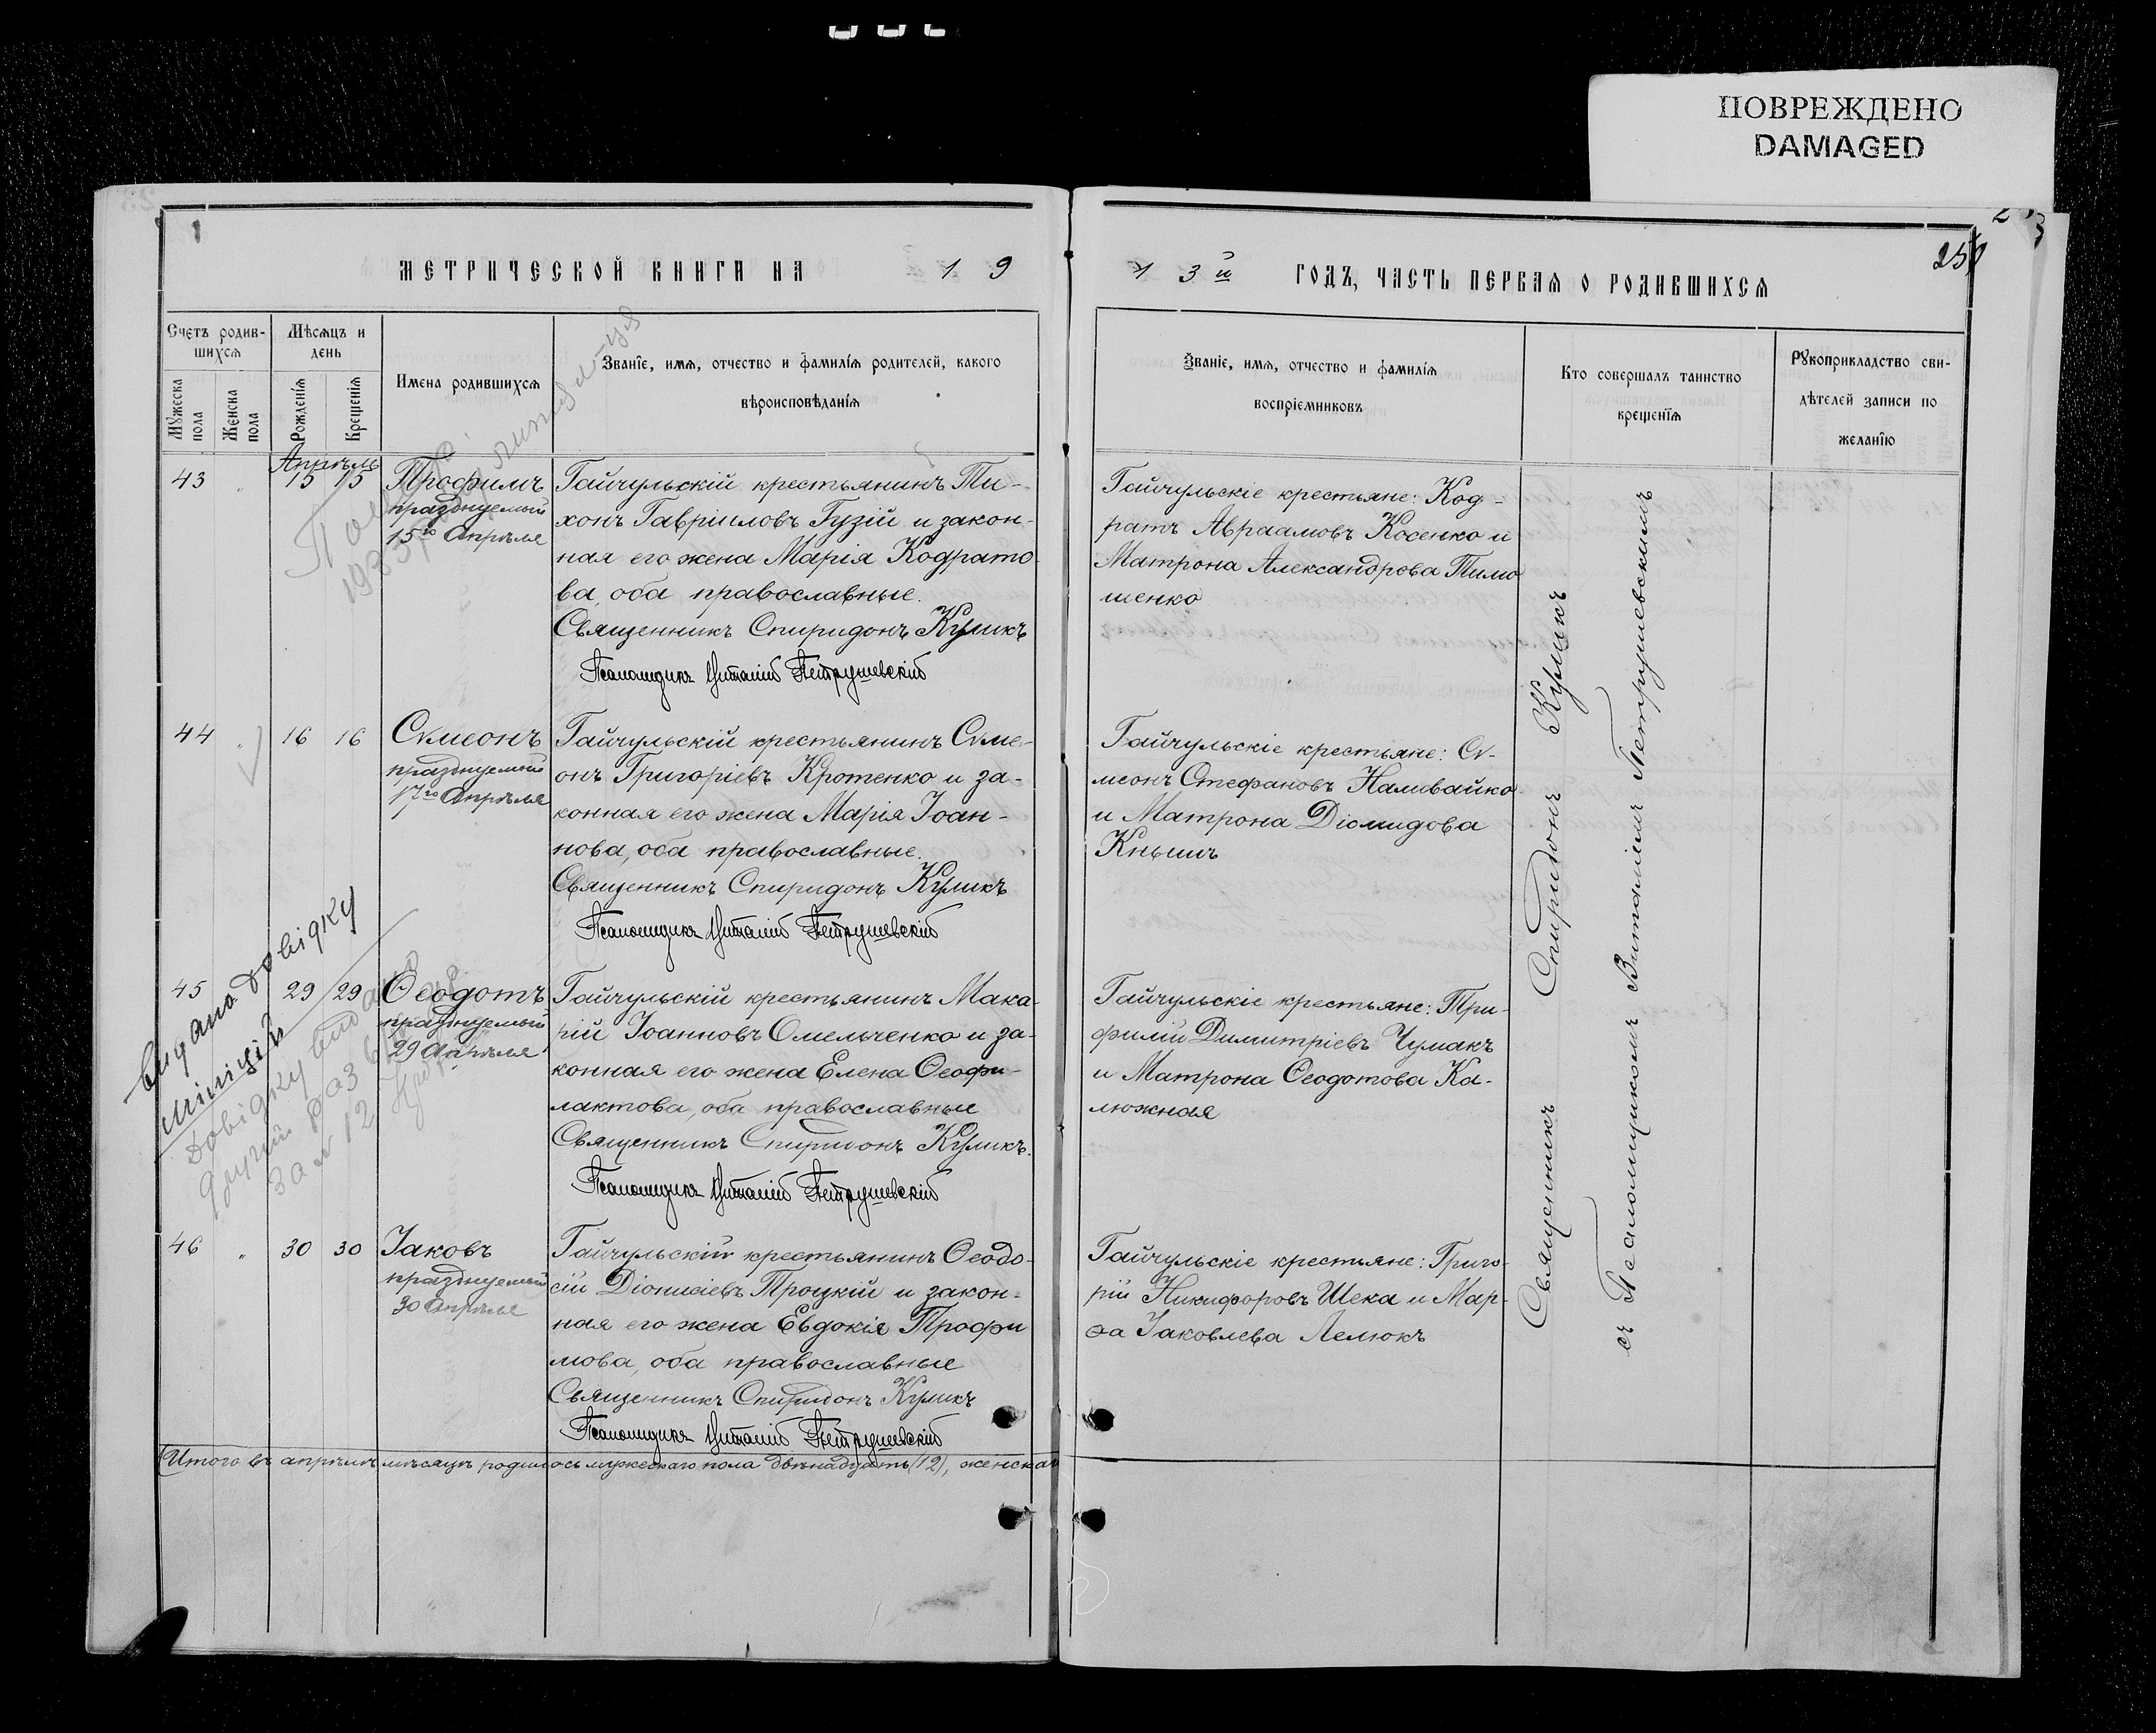 ПОВРЕЖДЕНО
DAMAGED
МЕТРИЧЕСКОЙ КНИГИ НА 19
13й ГОДЪ, ЧАСТЬ ПЕРВАЯ О РОДИВШИХСЯ
Счетъ родив-
шихся
Мѣсяцъ и
день
Мужеска
пола
Женска
пола
Рожденія
Крещенія
Имена родившихся
Званіе, имя, отчество и фамилія родителей, какого
вѣроисповѣданія
Званіе, имя, отчество и фамилія
воспріемниковъ
Кто совершалъ таинство
крещенія
Рукоприкладство сви-
дѣтелей записи по
желанію
Апрѣль
43 15 15
Трофимъ
празднуемый
15го Апрѣля
Гайчульскій крестьянинъ Ти-
хонъ Гавріиловъ Гузій и закон-
ная его жена Марія Кодрато-
ва, оба православные.
Священникъ Спиридонъ Куликъ
Псаломщикъ Виталій Петрушевскій
Гайчульскіе крестьяне: Код-
ратъ Авраамовъ Косенко и
Матрона Александрова Тимо
шенко
44 " 16 16
Сѵмеонъ
празднуемый
17го Апрѣля
Гайчульскій крестьянинъ Сѵме-
онъ Григоріевъ Кротенко и за-
конная его жена Марія Іоан-
нова, оба православные.
Священникъ Спиридонъ Куликъ
Псаломщикъ Виталій Петрушевскій
Гайчульскіе крестьяне: Сѵ-
меонъ Стефановъ Наливайко
и Матрона Діомидова
Кнышъ
45 29 29
Ѳеодотъ
празднуемый
29 Апрѣля
Гайчульскій крестьянинъ Мака-
рій Іоанновъ Омельченко и за-
конная его жена Елена Ѳеофи-
лактова, оба православные
Священникъ Спиридонъ Куликъ.
Псаломщикъ Виталій Петрушевскій
Гайчульскіе крестьяне: Три-
филій Димитріевъ Чумакъ
и Матрона Ѳеодотова Ка-
люжная
видано довідку
довідку видано
другий раз
за № 12
46 " 30 30
Іаковъ
празднуемый
30 Апрѣля
Гайчульскій крестьянинъ Ѳеодо-
сій Діонисіевъ Троцкій и закон-
ная его жена Евдокія Трофи
мова, оба православные
Священникъ Спиридонъ Куликъ
Псаломщикъ Виталій Петрушевскій
Гайчульскіе крестьяне: Григо-
рій Никифоровъ Шека и Мар-
ѳа Іаковлева Лелюкъ
Священникъ Спиридонъ Куликъ
съ Псаломщикомъ Виталіемъ Петрушевскимъ
Итого въ апрѣлѣ мѣсяцѣ родилось мужескаго пола двѣнадцать (12), женскаго